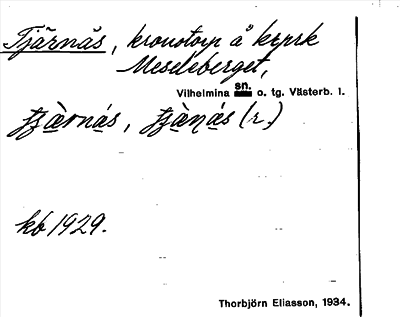 Tjärnäs, kronotorp å krprk
Meseleberget,
Vilhelmina sn. o. tg. Västerb. l.
tjä̀rnás, tjä̀ṇás (r.)
kb 1929.
Thorbjörn Eliasson, 1934.